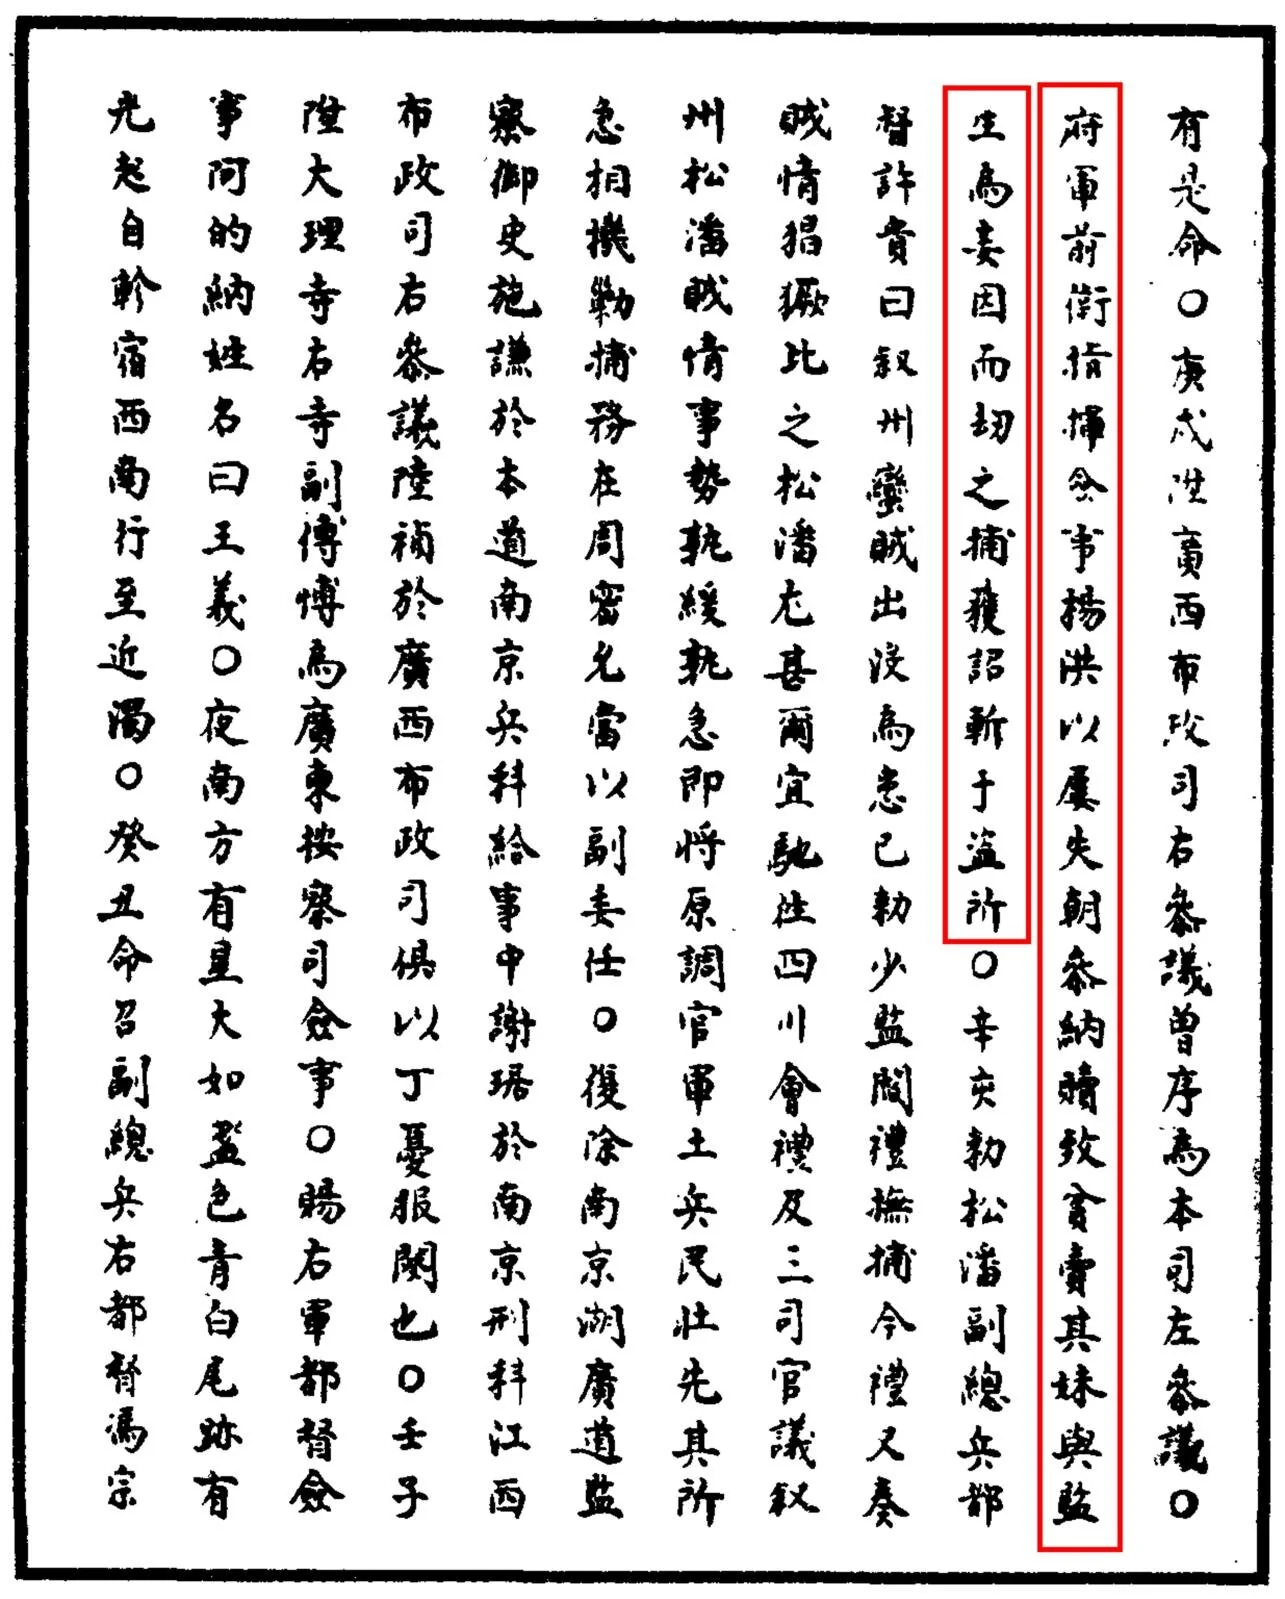 有是命○庚戌陞廣西布政司右叅議曾序爲本司左叅議○
府軍前衛指揮僉事楊洪以屢失朝叅納贖致貧賣其妹與監
生爲妾因而刼之捕獲詔斬于盜所○辛亥勑松潘副總兵都
督許貴曰叙州蠻賊出沒爲患已勑少監閻禮撫捕今禮又奏
賊情猖獗比之松潘尤甚爾宜馳往四川會禮及三司官議叙
州松潘賊情事勢孰緩孰急即將原調官軍土兵民壯先其所
急相機勦捕務在周密允當以副委任○復除南京湖廣道監
察御史施謙於本道南京兵科給事中謝琚於南京刑科江西
布政司右叅議陸禎於廣西布政司俱以丁憂服闋也○壬子
陞大理寺右寺副傅博爲廣東按察司僉事○賜右軍都督僉
事阿的納姓名曰王義○夜南方有星大如盞色青白尾跡有
光起自軫宿西南行至近濁○癸丑命召副總兵右都督馮宗